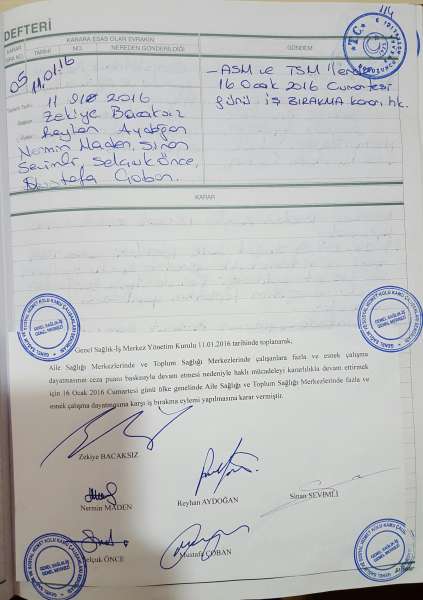 114
DEFTERİ
KARAR SIRA NO.
KARARA ESAS OLAN EVRAKIN
TARİHİ NO. NEREDEN GÖNDERİLDİĞİ
GÜNDEM
05
11.01.16
- ASM ve TSM
16 Ocak 2016 Cumartesi
günü iş BIRAKMA kararı hk.
2016
Zekiye Bacaksız
Reyhan Aydoğan
Nermin Maden, Sinan
Sevimli, Selçuk Önce,
Mustafa Çoban.
KARAR
GENEL SAĞLIK-İŞ
GENEL MERKEZİ
GENEL SAĞLIK-İŞ
GENEL MERKEZİ
Genel Sağlık-İş Merkez Yönetim Kurulu 11.01.2016 tarihinde toplanarak,
Aile Sağlığı Merkezlerinde ve Toplum Sağlığı Merkezlerinde çalışanlara fazla ve esnek çalışma
dayatmasının ceza puanı baskısıyla devam etmesi nedeniyle haklı mücadeleyi kararlılıkla devam ettirmek
için 16 Ocak 2016 Cumartesi günü ülke genelinde Aile Sağlığı ve Toplum Sağlığı Merkezlerinde fazla ve
esnek çalışma dayatmasına karşı iş bırakma eylemi yapılmasına karar vermiştir.
Zekiye BACAKSIZ
Nermin MADEN
Reyhan AYDOĞAN
Sinan SEVİMLİ
Selçuk ÖNCE
Mustafa ÇOBAN
GENEL SAĞLIK-İŞ
GENEL MERKEZİ
GENEL SAĞLIK-İŞ
GENEL MERKEZİ